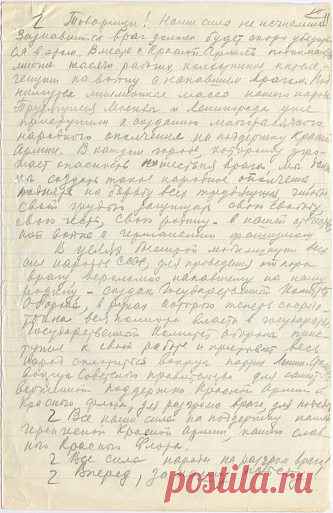 2 Товарищи! Наши силы неисчислимы.
Зазнавшийся враг должен будет скоро убедить
ся в этом. Вместе с Красной Армией поднимаются
многие тысячи рабочих, колхозников,
на войну с напавшим врагом.
миллионные массы нашего народа.
Трудящиеся Москвы и Ленинграда уже
приступили к созданию многотысячного
народного ополчения на поддержку Красной
Армии. В каждом городе, которому угро-
жает опасность нашествия врага, мы
создать такое народное ополчение,
поднять на борьбу всех трудящихся, чтобы
своей грудью защищать свою свободу,
свою честь, свою родину - в нашей
войне с германским фашизмом.
В целях быстрой мобилизации
сил народов СССР, для проведения отпора
врагу, вероломно напавшему на нашу
родину, - создан Государственный Комитет
Обороны, в руках которого теперь сосредо-
вся полнота власти в государстве.
Государственный Комитет Обороны
к своей работе и призывает весь
народ сплотиться вокруг партии
вокруг Советского правительства для
поддержки Красной Армии и
Красного флота, для разгрома врага, для победы.
2 Все наши силы на поддержку нашей
героической Красной Армии, нашего слав-
ного Красного Флота.
2 Все силы народа на разгром врага!
2 Вперед, за нашу победу!
postila.ru